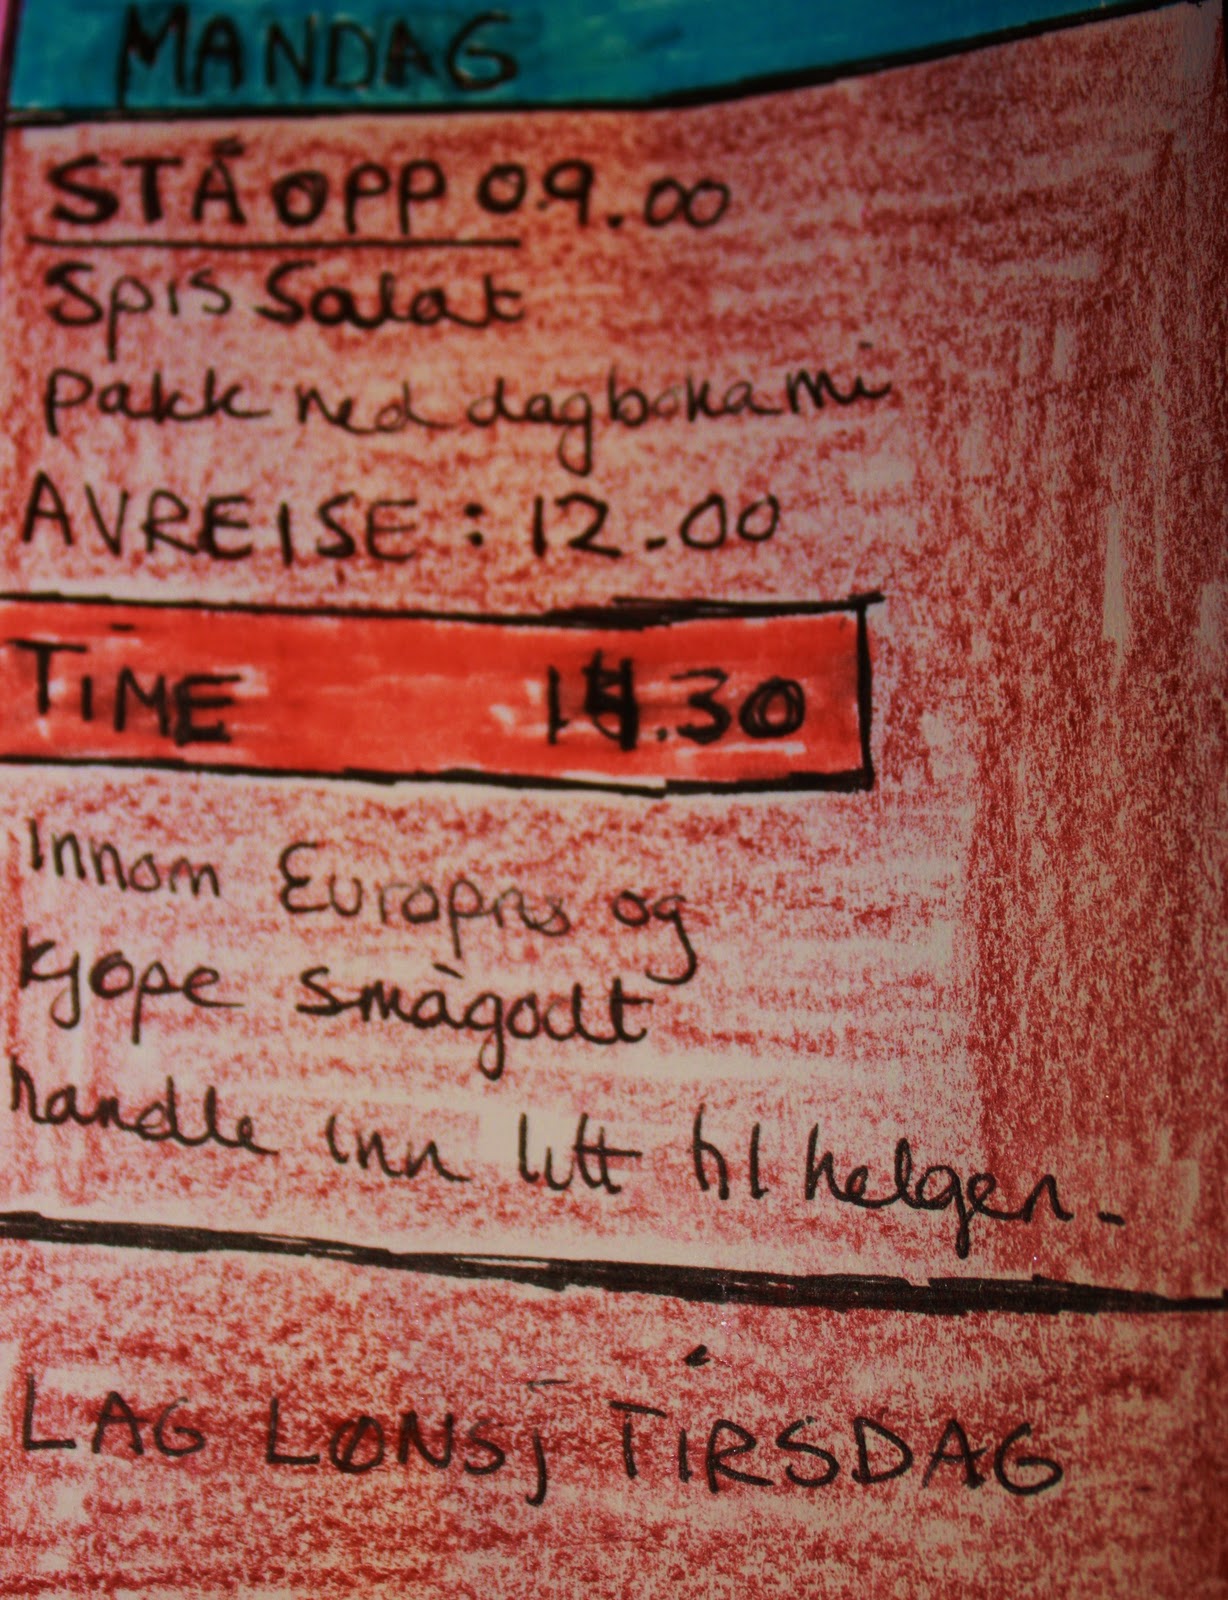 MANDAG
STÅ OPP 09.00
Spis Salat
pakk ned dagboka mi
AVREISE : 12.00
TIME 14.30
Innom Europris og
Kjøpe smågodt
handle inn litt til helgen.
LAG LØNSJ TIRSDAG